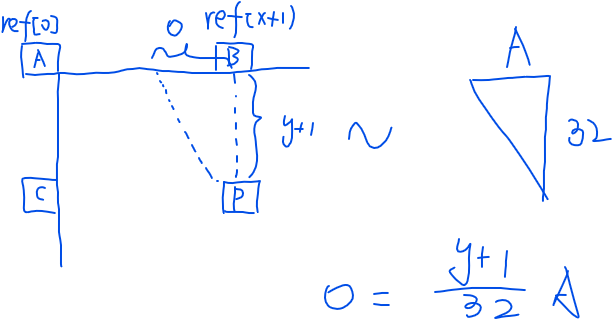 ref[0]
O
ref(x+1)
A
B
A
y+1
~
32
C
P
O = y+1 / 32 A